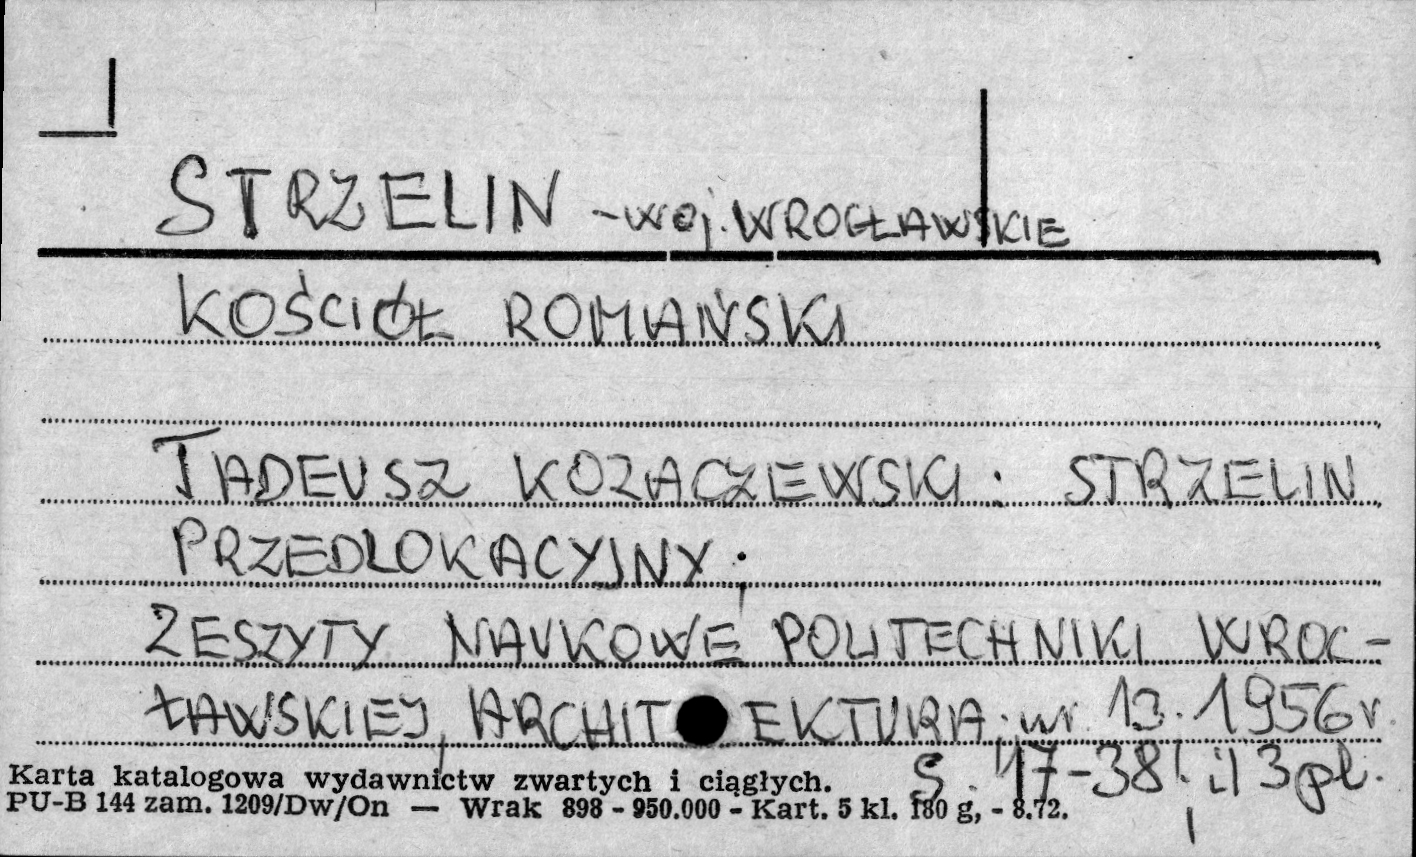 STRZELIN - woj. WROCŁAWSKIE
KOŚCIÓŁ ROMAŃSKI
TADEUSZ KOZACZEWSKI: STRZELIN
PRZEDLOKACYJNY;
ZESZYTY NAUKOWE POLITECHNIKI WROC-
ŁAWSKIEJ, ARCHITEKTURA; nr. 13. 1956 r.
S. 17-38; il 3 pl.
Karta katalogowa wydawnictw zwartych i ciągłych.
PU-B 144 zam. 1209/Dw/On — Wrak 898 - 950.000 - Kart. 5 kl. 180 g, - 8.72.